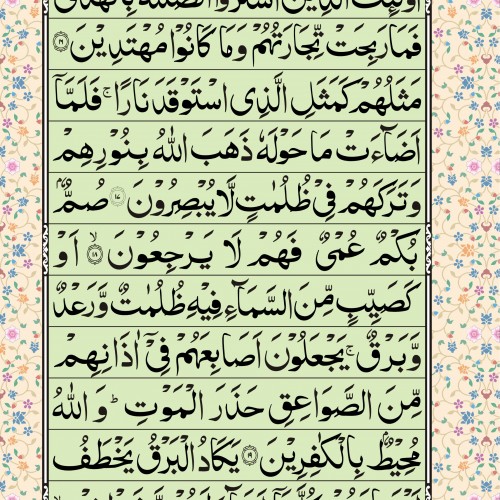 اُولٰٓئِكَ الَّذِيْنَ اشْتَرَوُا الضَّلٰلَةَ بِالْهُدٰى
فَمَا رَبِحَتْ تِّجَارَتُهُمْ وَمَا كَانُوْا مُهْتَدِيْنَ ۝۱۶
مَثَلُهُمْ كَمَثَلِ الَّذِى اسْتَوْقَدَ نَارًا ۚ فَلَمَّآ
اَضَآءَتْ مَا حَوْلَهٗ ذَهَبَ اللّٰهُ بِنُوْرِهِمْ
وَتَرَكَهُمْ فِىْ ظُلُمٰتٍ لَّا يُبْصِرُوْنَ ۝۱۷ صُمٌّۢ
بُكْمٌ عُمْىٌ فَهُمْ لَا يَرْجِعُوْنَ ۙ۝۱۸ اَوْ
كَصَيِّبٍ مِّنَ السَّمَآءِ فِيْهِ ظُلُمٰتٌ وَّرَعْدٌ
وَّبَرْقٌ ۚ يَجْعَلُوْنَ اَصَابِعَهُمْ فِىْٓ اٰذَانِهِمْ
مِّنَ الصَّوَاعِقِ حَذَرَ الْمَوْتِ ؕ وَاللّٰهُ
مُحِيْطٌۢ بِالْكٰفِرِيْنَ ۝۱۹ يَكَادُ الْبَرْقُ يَخْطَفُ